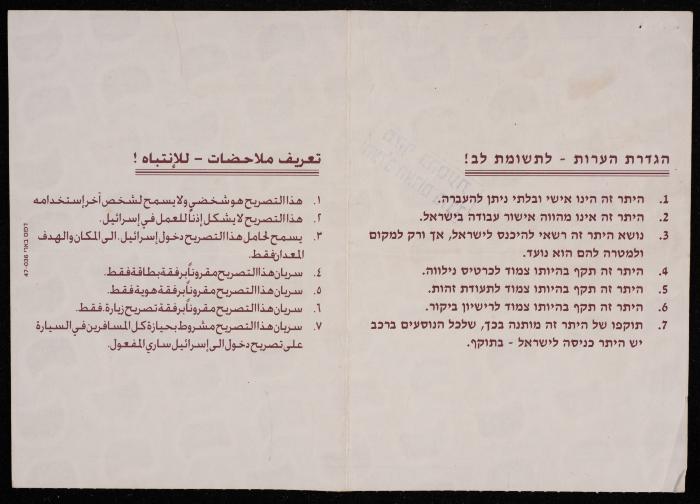 הגדרת הערות - לתשומת לב!
1. היתר זה הינו אישי ובלתי ניתן להעברה.
2. היתר זה אינו מהווה אישור עבודה בישראל.
3. נושא היתר זה רשאי להיכנס לישראל, אך ורק למקום
ולמטרה להם הוא נועד.
4. היתר זה תקף בהיותו צמוד לכרטיס נילווה.
5. היתר זה תקף בהיותו צמוד לתעודת זהות.
6. היתר זה תקף בהיותו צמוד לרישיון ביקור.
7. תוקפו של היתר זה מותנה בכך, שלכל הנוסעים ברכב
יש היתר כניסה לישראל - בתוקף.
تعريف ملاحضات - للإنتباه !
١. هذا التصريح هو شخضي ولا يسمح لشخص آخر إستخدامه
٢. هذا التصريح لا يشكل إذناً للعمل في إسرائيل.
٣. يسمح لحامل هذا التصريح دخول إسرائيل. الى المكان والهدف
المعدان فقط.
٤. سريان هذا التصريح مقروناً برفقة بطاقة فقط.
٥. سريان هذا التصريح مقروناً برفقة هوية فقط.
٦. سريان هذا التصريح مقروناً برفقة تصريح زيارة. فقط.
٧. سريان هذا التصريح مشروط بحيازة كل المسافرين في السيارة
على تصريح دخول الى إسرائيل ساري المفعول.
דפוס בארי 47-036